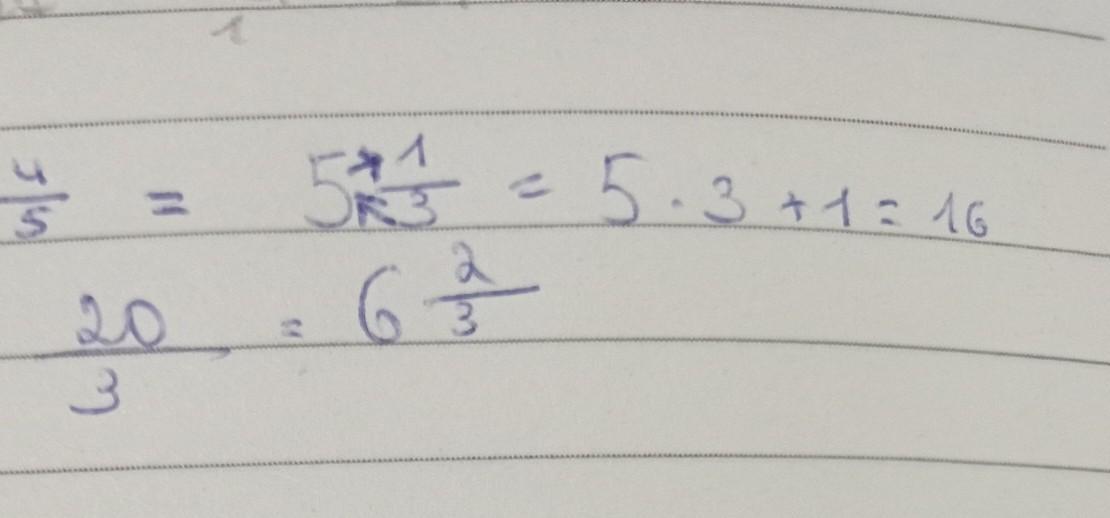 1
4/5 = 5 1/3 = 5 · 3 + 1 = 16
20/3 = 6 2/3